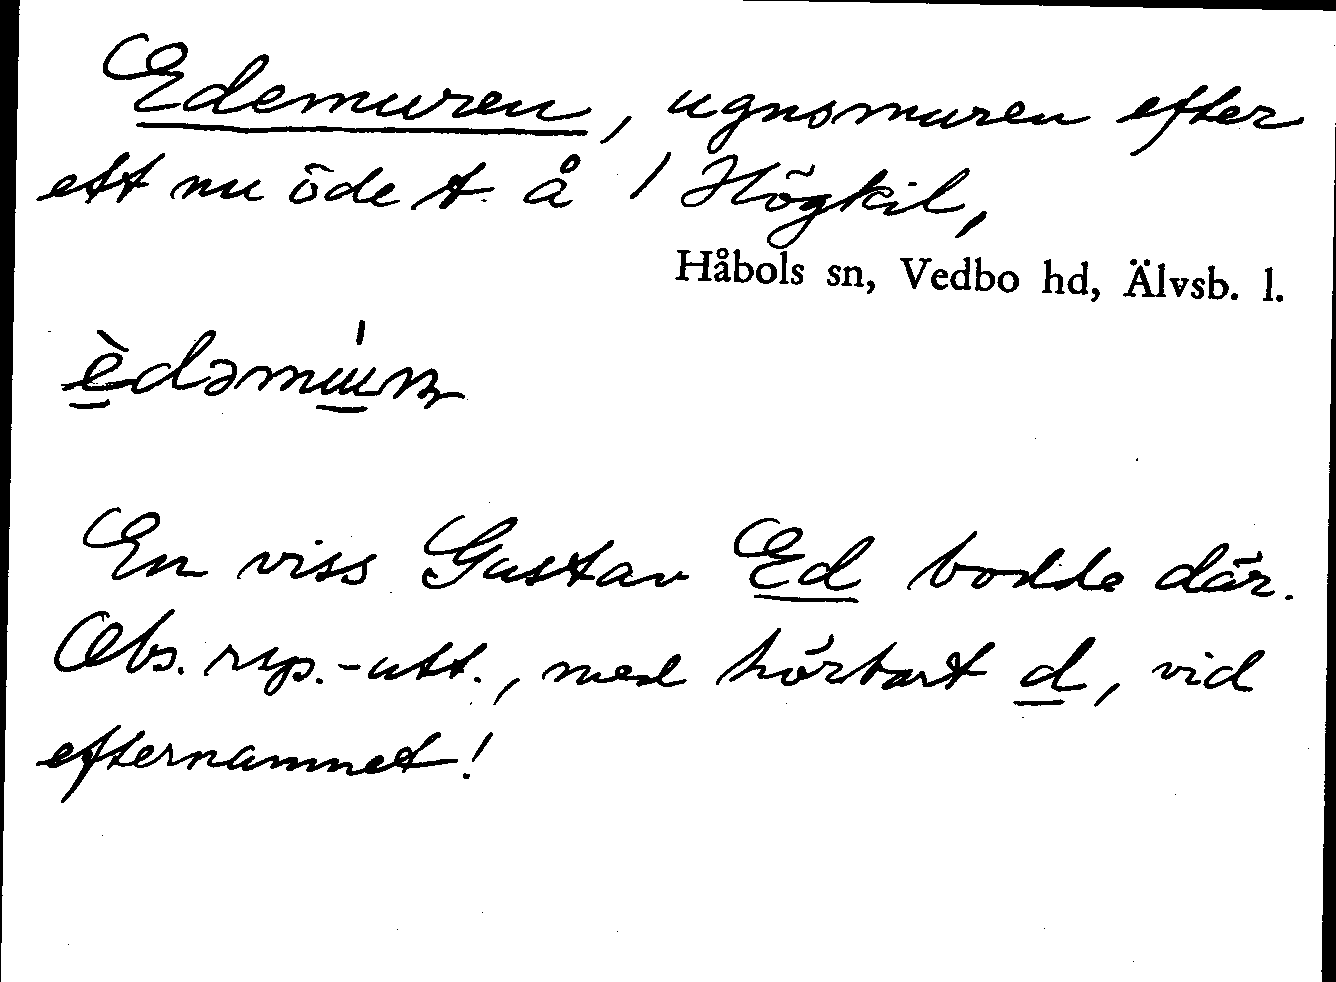 Edemuren, ugnsmuren efter
ett nu öde t. å 1 Högkil,
Håbols sn, Vedbo hd, Älvsb. l.
En viss Gustav Ed bodde där.
Obs. rsp.-utt., med hörbart d, vid
efternamnet!